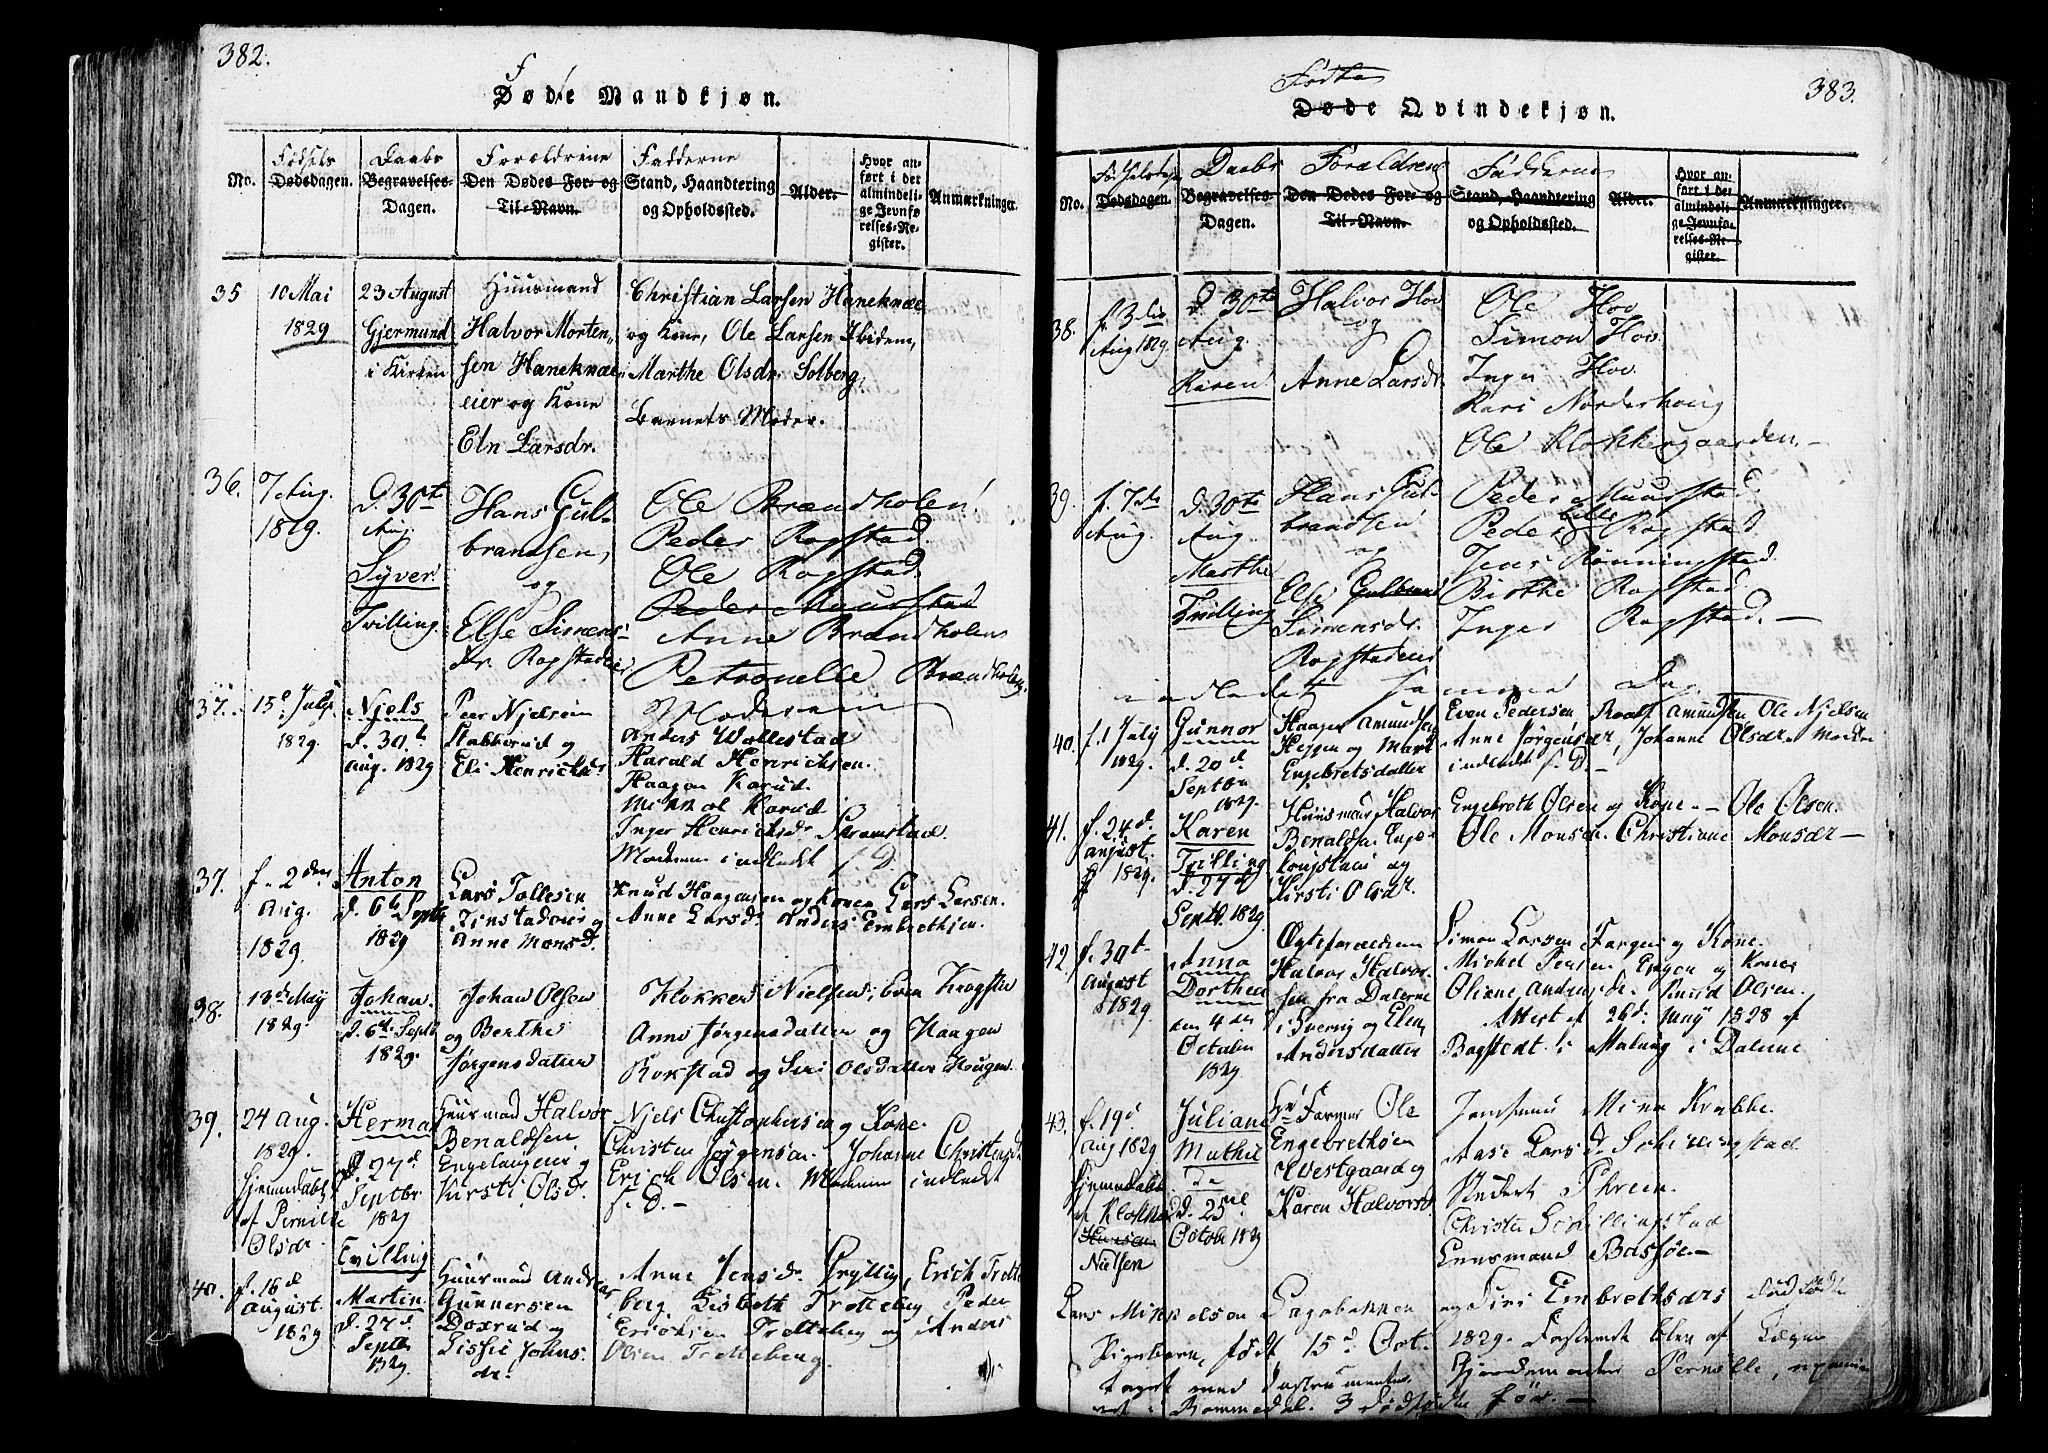 382.
F
Døde Mandkjøn.
No.
Fødsels
Dødsdagen.
Daabs
Begravelses-
Dagen.
Forældrene
Den Dødes For- og
Til-Navn.
Fadderne
Stand, Haandtering
og Opholdssted.
Alder.
Hvor an-
ført i det
almindeli-
ge Jevnfø-
relses-Re-
gister.
Anmærkninger.
35
10 Mai
1829
23 August
Gjermund
i Kirken
Huusmand
Halvor Morten-
sen Haneknæ-
eier og Kone
Eln Larsdr.
Christian Larsen Haneknæe
og Kone, Ole Larsen Ibidem,
Marthe Olsdr. Solberg,
Barnets Moder.
36.
7 Aug.
1829.
d. 30te
Aug.
Syver
Tvilling
Hans Gul-
brandsen,
og
Else Simens-
dr. Rogstadeie
Ole Brændholen
Peder Rogstad.
Ole Rogstad.
Peder Muurstad
Anne Brændholen
Petronelle Brændholen
Moderen
37.
15d July
1829.
Njels
d. 30te
Aug. 1829
Peer Njelsen
Stabberud og
Eli Henrichsdr
Anders Wollestad
Harald Henrichsen.
Haagen Korud.
Mikkel Korud
Inger Henrichsdr Stramstad.
Moderen indledt f. D.
37.
f. 2den
Aug.
1829.
Anton
d. 6te Septb
1829
Lars Tollesen
Finstadeier og
Anne Monsd.
Knud Haagensen og Konen Lars Larsen.
Anne Larsdr Anders Embrethsen.
38.
18de May
1829.
Johan.
d. 6te Septb
1829.
Johan Olsen
og Berthe
Jørgensdatter
Klokker Nielsen, Even Krogstie
Anne Jørgensdatter og Haagen
Rokstad og Siri Olsdatter Hougen.
39.
24 Aug.
1829.
Hjemmdøbt
af Pernille
Olsdr
Herman
d. 27d
Septbr
1829
Tvilling
Huusmand Halvor
Benaldsen
Engelaugeie og
Kirsti Olsdr.
Njels Christophersen og Kone.
Christen Jørgensen. Johanne Christensdr
Erich Olsen. Moderen indledt
f. D.-
40.
f. 16d
August.
1829
Martin
d. 27d
Septb
1829
Huusmand Andreas
Gunnersen
Doxrud og
Lissie Johns-
dr.
Anne Jensdr. Grylling, Erich Trette
berg, Lisbeth Tretteberg, Peder
Erichsen Tretteberg og Anders
Olsen Tretteberg.
383.
Fødte
Døde Qvindekjøn.
No.
Fødselsdage
Dødsdagen.
Daabs
Begravelses-
Dagen.
Forældrene
Den Dødes For- og
Til-Navn.
Fadderne
Stand, Haandtering
og Opholdssted.
Alder.
Hvor an-
ført i det
almindeli-
ge Jevnfø-
relses-Re-
gister.
Anmærkninger.
38.
f. 3die
Aug 1829.
d. 30te
Aug.
Karen
Halvor Hov
og
Anne Larsdr.
Ole Hov
Simon Hov.
Inger Hov.
Kari Norderhoug
Ole Klokkergaarden.-
39.
f. 7de
Aug.
d. 30te
Aug.
Marthe
Tvilling
Hans Gul-
brandsen
og
Else Gulbrand
Simensdr.
Rogstadeie
Peder Muurstad.
Peder Rogstad.
Jens Rønningstad.
Birthe Rogstad
Inger Rogstad.-
indledet samme Dag
40.
f. 1 July
1829.
Gunnor
d. 20d
Septbr
1829.
Haagen Amundsen
Hejgen og Mari
Engebretsdatter
Even Pedersen, Roalf Amundsen Ole Njelsen
Anne Jørgensdr, Johanne Olsdr. Moder
indledt f. D.-
41.
f. 24d.
August.
1829.
Karen
Tvilling
d. 27d
Septb. 1829
Huusmand Halvor
Benaldsen Enge-
laugseie og
Kirsti Olsdr.
Engebreth Olsen og Kone.- Ole Olsen.
Ole Monsen. Christiane Monsdr-
42.
f. 30t
August
1829
Anna
Dorthea
den 4de
October
1829
Ægteforældrene
Halvor Halvor-
sen fra Dalerne
i Sverrig og Elen
Andersdatter
Simon Larsen Fargen og Kone.
Michel Pensen Engen og Kone
Oliane Andersdr. Knud Olsen.
Attest af 26d. May 1828 af
Bagstedt i Malung i Dalerne
43.
f. 19d
Aug 1829
Hjemmdøbt
af Klokker
Nielsen
Juliane
Mathil
de
d. 25de
October 1829
Hr Farmer Ole
Engebrethsen
Westgaard og
Karen Halvorsd
Jomfru Mina Krabbe.
Aase Larsdr Schillingstad
Student Threen.
Christen Schillingstad
Lensmand Bassøe-
Lars Mikkelsen Sagabakken og Siri Embrethsdr Dødfødt
Pigebarn, født 15d Oct. 1829. Forløst blev af Læge
taget med Instrumenter Gjordemoder Pernille,
i Rommedal. 3 Dødfødte før.-